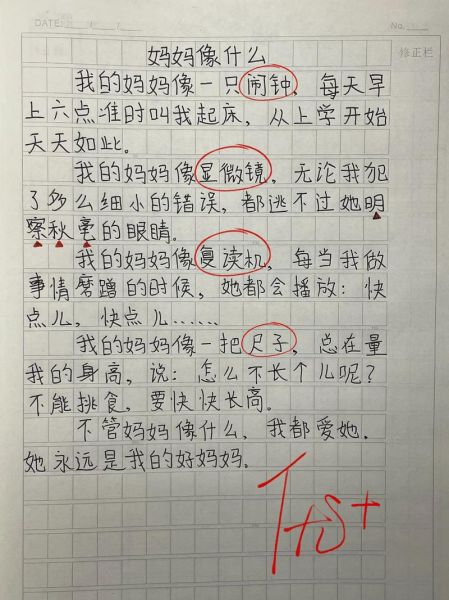 DATE: / /
No.
修正栏
妈妈像什么
我的妈妈像一只闹钟，每天早
上六点准时叫我起床，从上学开始
天天如此。
我的妈妈像显微镜，无论我犯
了多么细小的错误，都逃不过她明
察秋毫的眼睛。
我的妈妈像复读机，每当我做
事情磨蹭的时候，她都会播放：快
点儿，快点儿……
我的妈妈像一把尺子，总在量
我的身高，说：怎么不长个儿呢？
不能挑食，要快快长高。
不管妈妈像什么，我都爱她，
她永远是我的好妈妈。